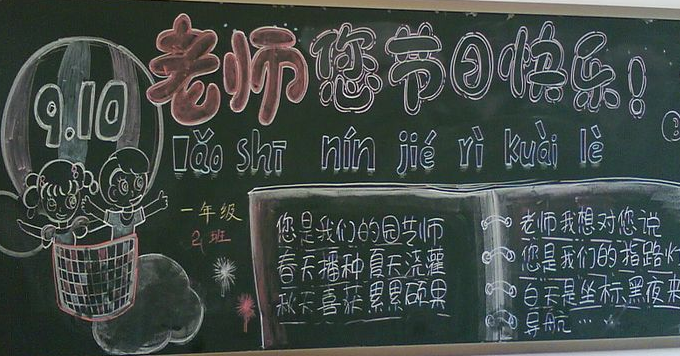 9.10
老师您节日快乐！
lǎo shī nín jié rì kuài lè
一年级
2班
您是我们的园艺师
春天播种夏天浇灌
秋天喜获累累硕果
老师我想对您说
您是我们的指路灯
白天是坐标黑夜来
导航…